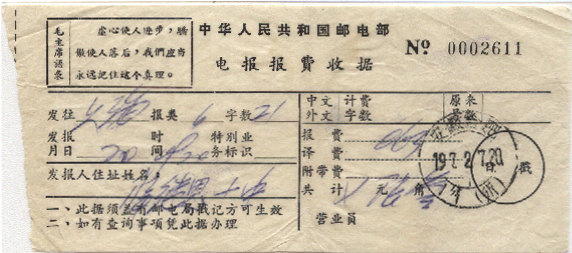 毛主席语录
虚心使人进步，骄
傲使人落后，我們应当
永远記住这个真理。
中华人民共和国邮电部
电报报费收据
Nº 0002611
发往 报类 6 字数 21
发报月日 20 时间 特别业务标识
发报人住址姓名：
中文 计费 原来
外文 字数 号数
报费
译费
附带费
共计 元 角
戳
营业员
一、此据须盖有邮电局戳记方可生效
二、如有查询事项凭此据办理